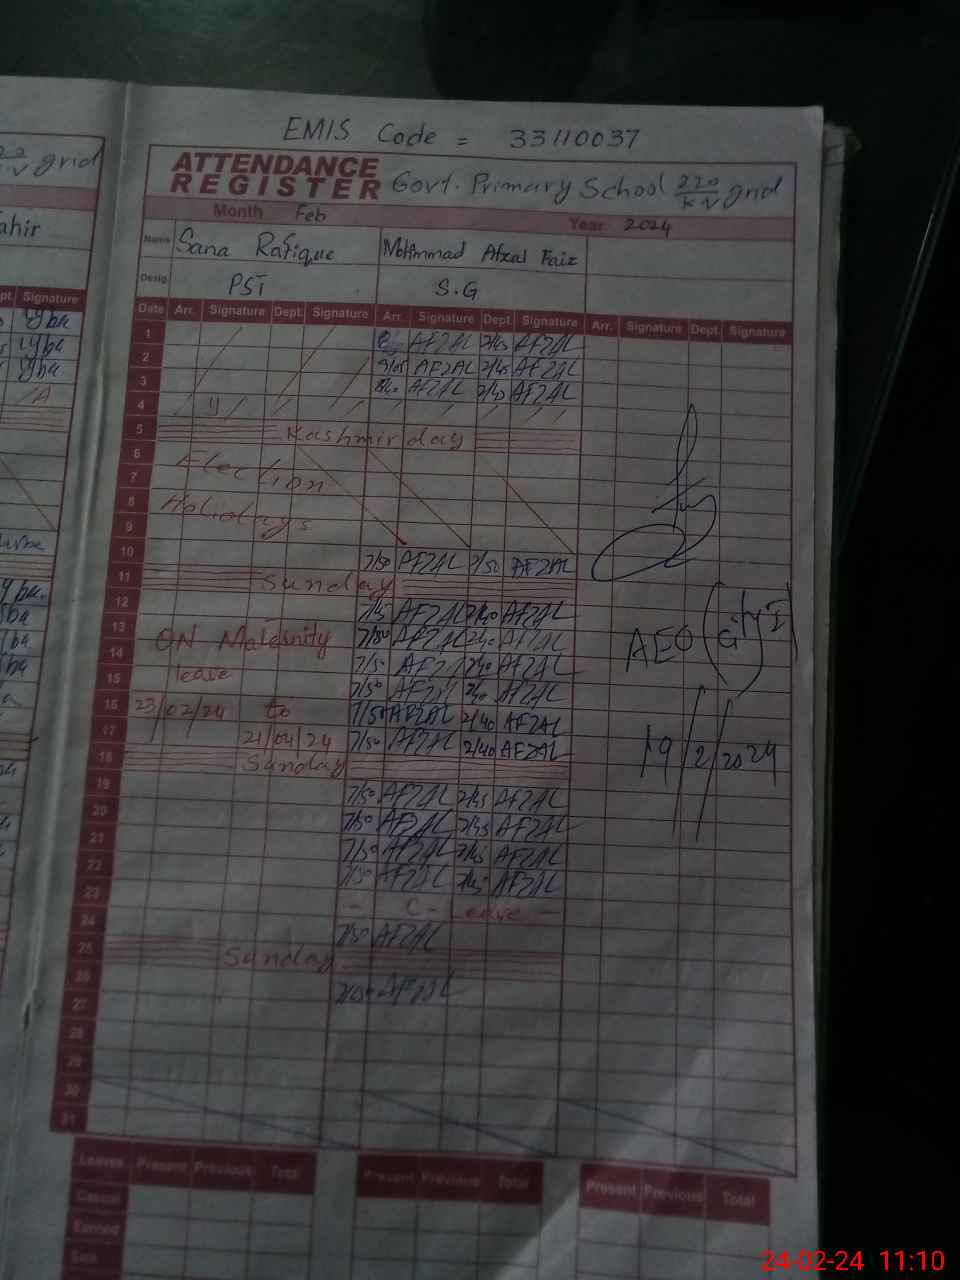 EMIS Code = 33110037
ATTENDANCE REGISTER Govt. Primary School 220 K.V grid
Month Feb Year 2024
Name Sana Rafique Mohmmad Afzal Faiz
Desig. PST S.G
Date Arr. Signature Dept. Signature Arr. Signature Dept. Signature Arr. Signature Dept. Signature
1 AFZAL 2/45 AFZAL
2 AFZAL 2/45 AFZAL
3 AFZAL AFZAL
4
5 Kashmir day
6 Election
7
8 Holidays
9
10 7/50 AFZAL 2/50 AFZAL
11 Sunday
12 AFZAL 2/40 AFZAL
13 ON Maternity 7/50 AFZAL 2/40 AFZAL
14 leave 7/50 AFZAL 2/40 AFZAL
15 7/50 AFZAL 2/40 AFZAL
16 23/02/24 to 7/50 AFZAL 2/40 AFZAL
17 21/04/24 7/50 AFZAL 2/40 AFZAL
18 Sunday
19 7/50 AFZAL 2/45 AFZAL
20 7/50 AFZAL 2/45 AFZAL
21 7/50 AFZAL 2/45 AFZAL
22 7/50 AFZAL 2/45 AFZAL
23 - C - Leave -
24 7/50 AFZAL
25 Sunday
26 AFZAL
27
28
29
30
31
AEO
19/2/2024
Leaves Present Previous Total Present Previous Total Present Previous Total
Casual
Earned
Sick
grid
ahir
pt. Signature
24-02-24 11:10